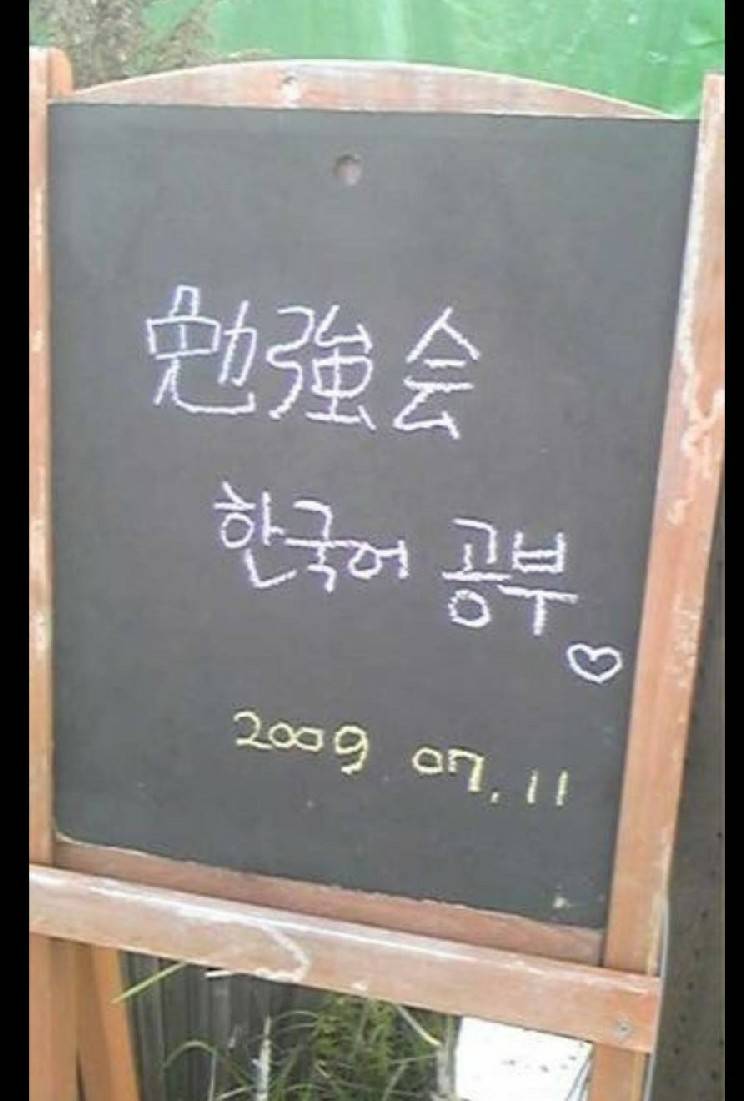 勉強会
한국어 공부♡
2009 07. 11